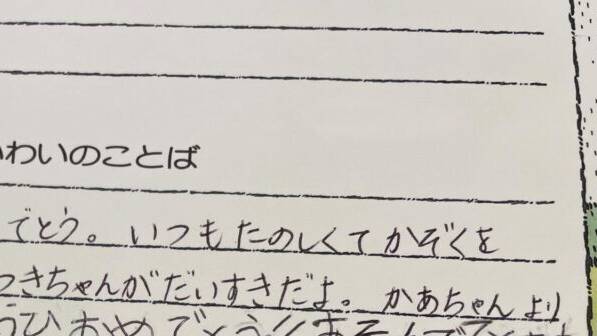 わいのことば
でとう。いつもたのしくてかぞくを
つきちゃんがだいすきだよ。かあちゃんより
うひおめでとう